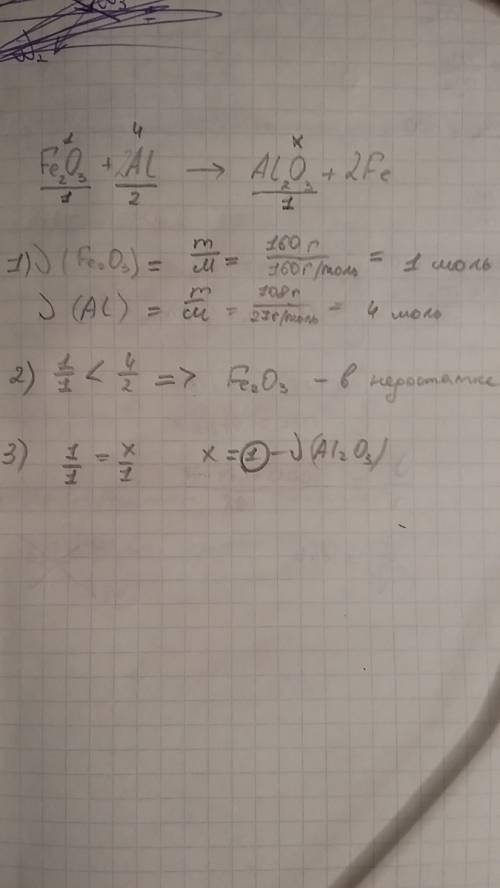 1 4 x
Fe₂O₃ + 2Al → Al₂O₃ + 2Fe
1 2 1
1) ν (Fe₂O₃) = m/M = 160 г/160 г/моль = 1 моль
ν (Al) = m/M = 108 г/27 г/моль = 4 моль
2) 1/1 < 4/2 => Fe₂O₃ - в недостатке
3) 1/1 = x/1 x = 1 - ν (Al₂O₃)